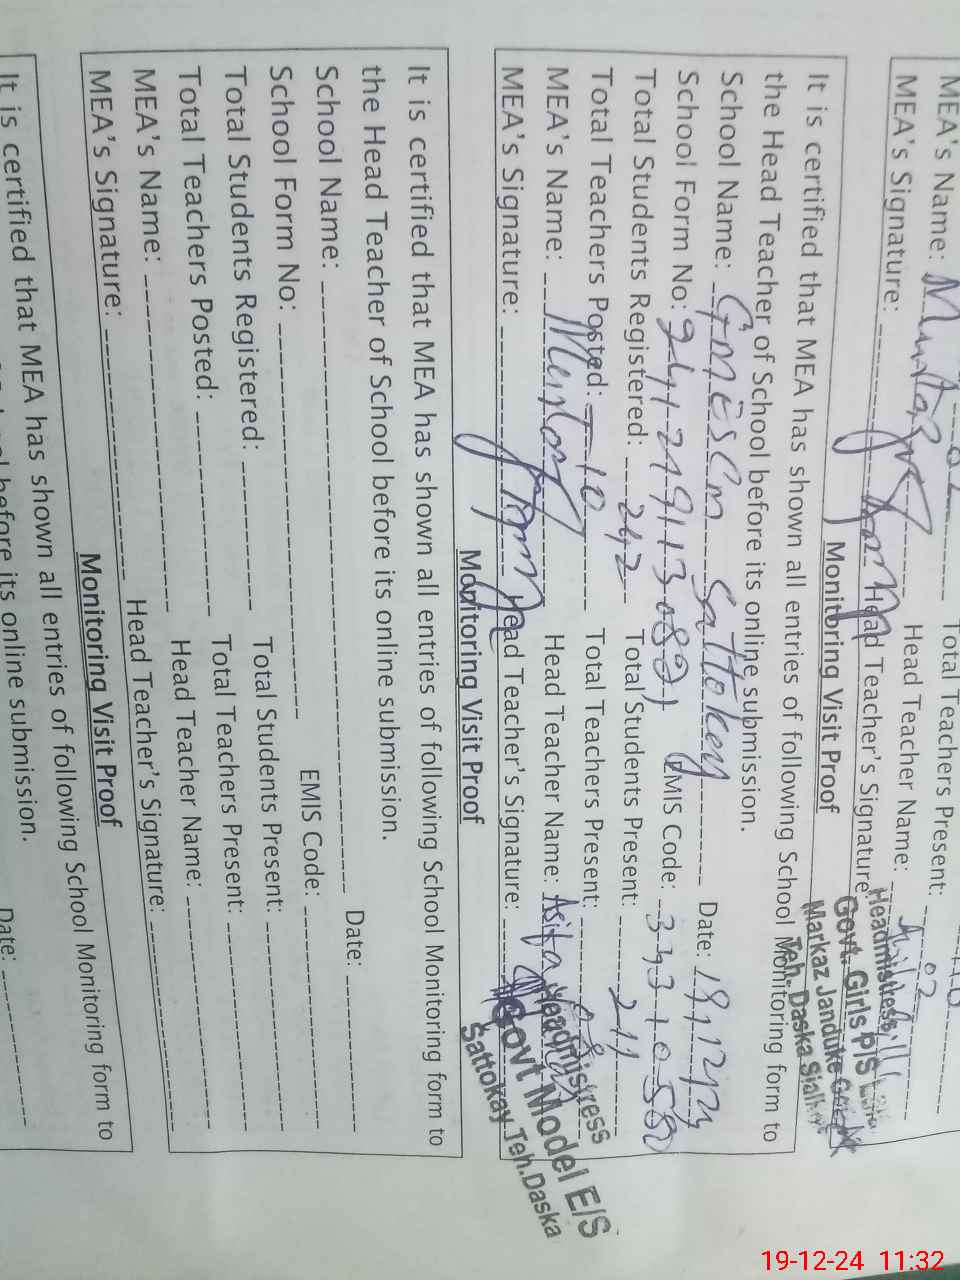 Total Teachers Present: 02
MEA's Name: Mumtaz Head Teacher Name:
MEA's Signature: Head Teacher's Signature
Headmistress
Govt. Girls P/S
Markaz Janduke
Teh. Daska Sialkot
Monitoring Visit Proof
It is certified that MEA has shown all entries of following School Monitoring form to
the Head Teacher of School before its online submission.
School Name: Sattokey Date: 19,12,24
School Form No: EMIS Code:
Total Students Registered: 242 Total Students Present: 211
Total Teachers Posted: T-10 Total Teachers Present: 08
MEA's Name: Mumtaz Head Teacher Name: Asifa
MEA's Signature: Head Teacher's Signature:
Headmistress
Govt Model E/S
Sattokay Teh.Daska
Monitoring Visit Proof
It is certified that MEA has shown all entries of following School Monitoring form to
the Head Teacher of School before its online submission.
School Name: Date:
School Form No: EMIS Code:
Total Students Registered: Total Students Present:
Total Teachers Posted: Total Teachers Present:
MEA's Name: Head Teacher Name:
MEA's Signature: Head Teacher's Signature:
Monitoring Visit Proof
It is certified that MEA has shown all entries of following School Monitoring form to
before its online submission.
Date:
19-12-24 11:32